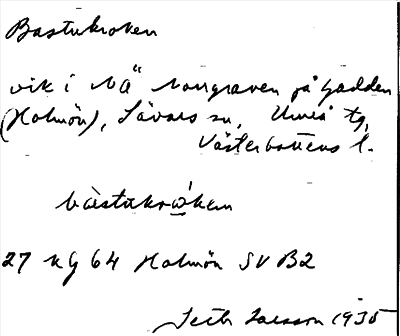 Bastukroken
vik i NÄ Norrgraven på Gadden
(Holmön), Sävars sn, Umeå tg,
Västerbottens l.
bàstukrὼkan
27 KG 64 Holmön SV B2
Seth Larsson 1935